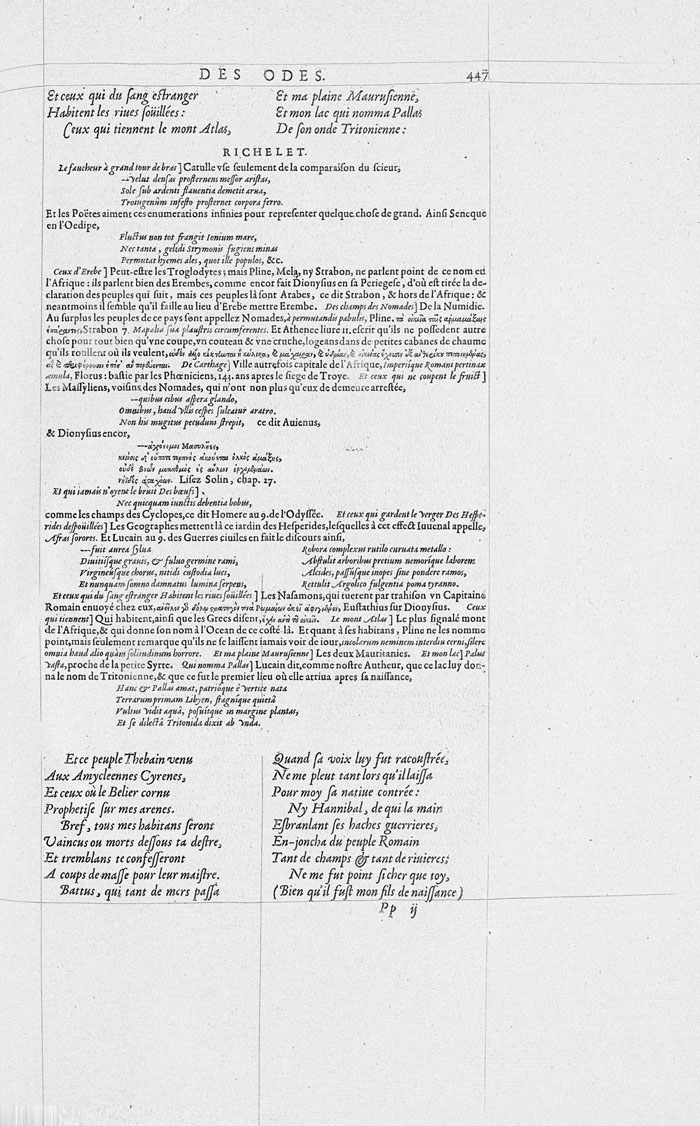 DES ODES. 447
Et ceux qui du sang estranger
Habitent les riues soüillées:
Ceux qui tiennent le mont Atlas,
Et ma plaine Maurusienne,
Et mon lac qui nomma Pallas
De son onde Tritonienne:
RICHELET.
Le faucheur à grand tour de bras] Catulle vse seulement de la comparaison du scieur,
--velut densas prosternens messor aristas,
Sole sub ardenti flauentia demetit arua,
Troiugenûm infesto prosternet corpora ferro.
Et les Poëtes aiment ces enumerations infinies pour representer quelque chose de grand. Ainsi Seneque
en l'Oedipe,
Fluctus non tot frangit Ionium mare,
Nec tanta, gelidi Strymonis fugiens minas
Permutat hyemes ales, quot ille populos, &c.
Ceux d'Erebe] Peut-estre les Troglodytes; mais Pline, Mela, ny Strabon, ne parlent point de ce nom en
l'Afrique: ils parlent bien des Erembes, comme encor fait Dionysius en sa Periegese, d'où est tirée la de-
claration des peuples qui suit, mais ces peuples là sont Arabes, ce dit Strabon, & hors de l'Afrique: &
neantmoins il semble qu'il faille au lieu d'Erebe mettre Erembe. Des champs des Nomades] De la Numidie.
Au surplus les peuples de ce pays sont appellez Nomades, à permutandis pabulis, Pline.
Strabon 7. Mapalia sua plaustris circumferentes. Et Athenee liure 11. escrit qu'ils ne possedent autre
chose pour tout bien qu'vne coupe, vn couteau & vne cruche, logeans dans de petites cabanes de chaume
qu'ils roullent où ils veulent,
De Carthage] Ville autrefois capitale de l'Afrique, imperiique Romani pertinax
æmula, Florus: bastie par les Phœniciens, 143. ans apres le siege de Troye. Et ceux qui ne coupent le fruict]
Les Massyliens, voisins des Nomades, qui n'ont non plus qu'eux de demeure arrestée,
--quibus cibus aspera glando,
Omnibus, haud vllis cespes sulcatur aratro.
Non his mugitus pecudum strepit, ce dit Auienus,
& Dionysius encor,
Lisez Solin, chap. 27.
Et qui iamais n'oyent le bruit Des bœufs].
Nec quicquam iunctis debentia bobus,
comme les champs des Cyclopes, ce dit Homere au 9. de l'Odyssée. Et ceux qui gardent le verger Des Hespe-
rides despoüillées] Les Geographes mettent là ce iardin des Hesperides, lesquelles à cet effect Iuuenal appelle,
Afras sorores. Et Lucain au 9. des Guerres ciuiles en fait le discours ainsi,
--fuit aurea sylua
Diuitiisque grauis, & fuluo germine rami,
Virgineusque chorus, nitidi custodia luci,
Et nunquam somno damnatus lumina serpens,
Robora complexus rutilo curuata metallo:
Abstulit arboribus pretium nemorique laborem
Alcides, passúsque inopes sine pondere ramos,
Rettulit Argolico fulgentia poma tyranno.
Et ceux qui du sang estranger Habitent les riues soüillées] Les Nasamons, qui tuerent par trahison vn Capitaine
Romain enuoyé chez eux, Eustathius sur Dionysius. Ceux
qui tiennent] Qui habitent, ainsi que les Grecs disent, Le mont Atlas] Le plus signalé mont
de l'Afrique, & qui donne son nom à l'Ocean de ce costé là. Et quant à ses habitans, Pline ne les nomme
point, mais seulement remarque qu'ils ne se laissent iamais voir de iour, incolarum neminem interdiu cerni, silere
omnia haud alio quàm solitudinum horrore. Et ma plaine Maurusienne] Les deux Mauritanies. Et mon lac] Palus
vasta, proche de la petite Syrte. Qui nomma Pallas] Lucain dit, comme nostre Autheur, que ce lac luy don-
na le nom de Tritonienne, & que ce fut le premier lieu où elle arriua apres sa naissance,
Hanc & Pallas amat, patrióque è vertice nata
Terrarum primam Libyen, stagnique quietâ
Vultus vidit aquâ, posuitque in margine plantas,
Et se dilectâ Tritonida dixit ab vnda.
Et ce peuple Thebain venu
Aux Amycleennes Cyrenes,
Et ceux où le Belier cornu
Prophetise sur mes arenes.
Bref, tous mes habitans seront
Vaincus ou morts dessous ta destre,
Et tremblans te confesseront
A coups de masse pour leur maistre.
Battus, qui tant de mers passa
Quand sa voix luy fut racoustrée,
Ne me pleut tant lors qu'il laissa
Pour moy sa natiue contrée:
Ny Hannibal, de qui la main
Esbranlant ses haches guerrieres,
En-joncha du peuple Romain
Tant de champs & tant de riuieres;
Ne me fut point si cher que toy,
(Bien qu'il fust mon fils de naissance)
Pp ij